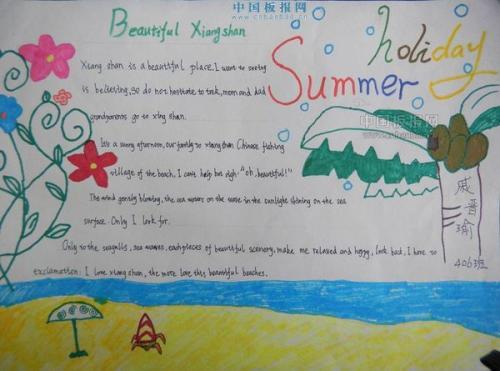 中国板报网
www.cnbanbao.cn
Beautiful Xiangshan
holiday
Summer
Xiang shan is a beautiful place. I want to seeing
is believing, so do not hesitate to trek, mom and dad
grandparents go to xing shan.
It's a sunny afternoon, our family to xiangshan Chinese fishing
village of the beach, I can't help but sigh "oh, beautiful!"
The wind gently blowing, the sea water on the wave in the sunlight shining on the sea
surface. Only I look for.
Only to the seagulls, sea waves, each pieces of beautiful scenery, make me relaxed and happy, look back, I have to
exclamation: I love xiang shan, the more love this beautiful beaches.
中国板报网
戚晋瑜
406班